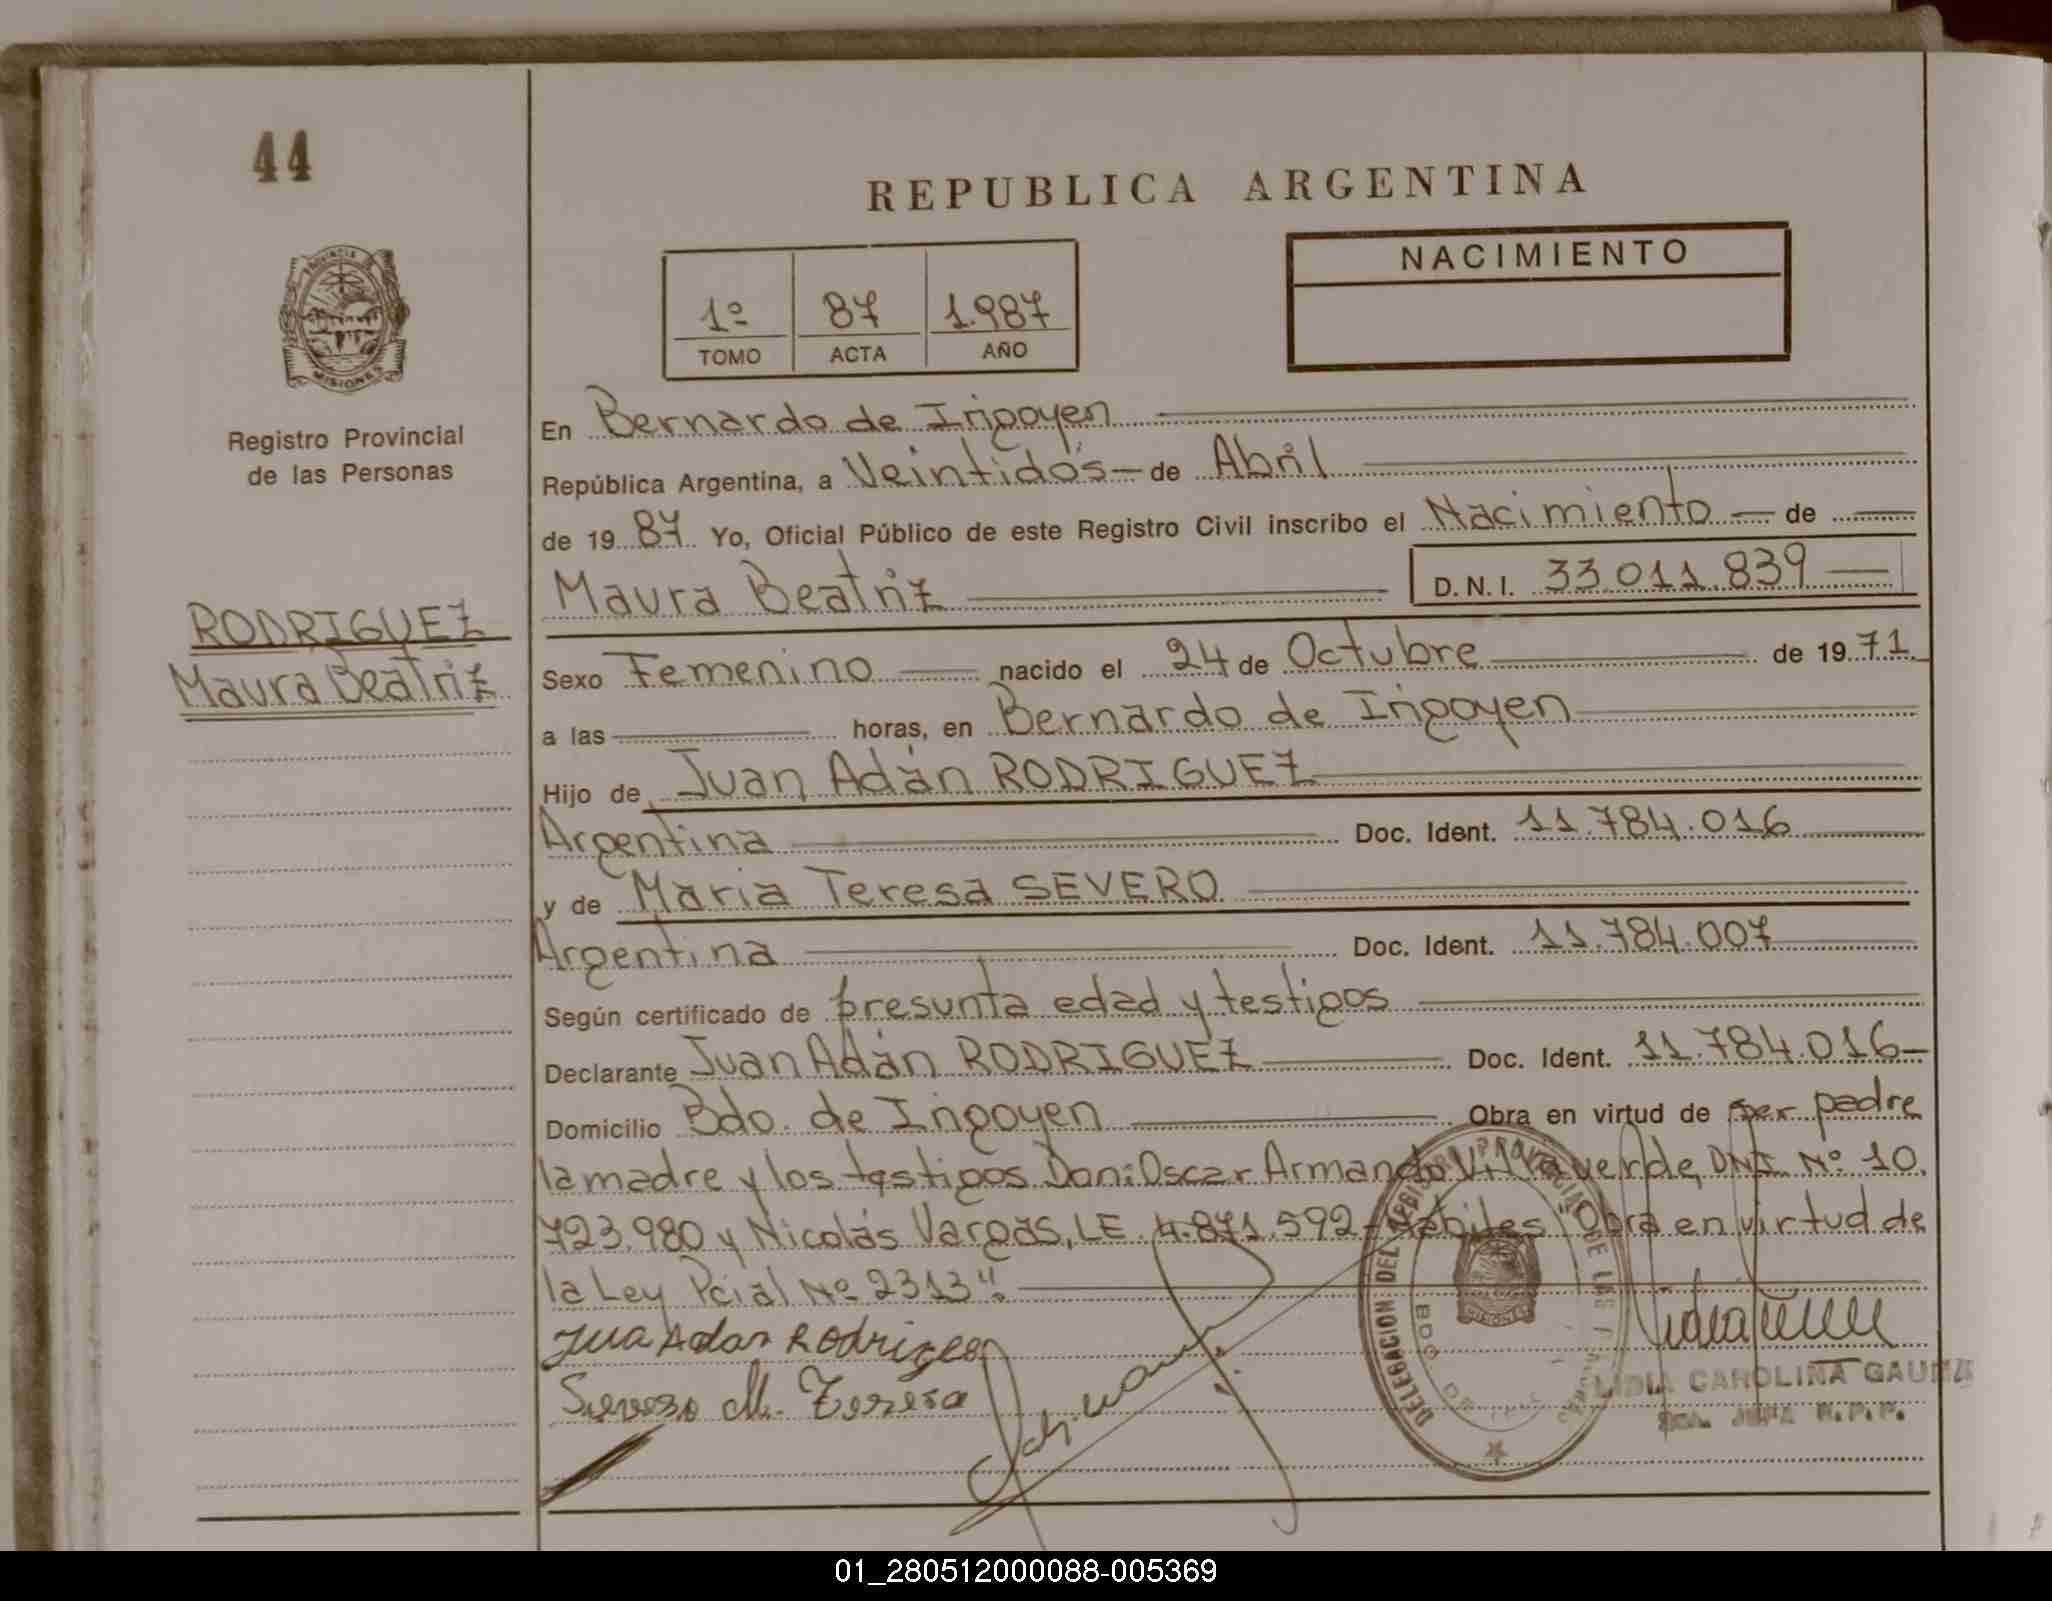 44
REPUBLICA ARGENTINA
NACIMIENTO
1º 87 1.987
TOMO ACTA AÑO
PROVINCIA DE
MISIONES
Registro Provincial
de las Personas
RODRIGUEZ
Maura Beatriz
En Bernardo de Irigoyen
República Argentina, a Veintidós — de Abril
de 19 87 Yo, Oficial Público de este Registro Civil inscribo el Nacimiento — de
Maura Beatriz D.N.I. 33.011.839
Sexo Femenino nacido el 24 de Octubre de 19 71
a las horas, en Bernardo de Irigoyen
Hijo de Juan Adán RODRIGUEZ
Argentina Doc. Ident. 11.784.016
y de Maria Teresa SEVERO
Argentina Doc. Ident. 11.784.007
Según certificado de presunta edad y testigos
Declarante Juan Adán RODRIGUEZ Doc. Ident. 11.784.016
Domicilio Bdo. de Irigoyen Obra en virtud de ser padre
la madre y los testigos Don: Oscar Armando Villaverde, DNI Nº 10.
723.980 y Nicolás Vargas, LE. 4.871.592 - Hábiles. Obra en virtud de
la Ley Pcial Nº 2313".
Jua Adan Rodriges
Severo M. Teresa
DELEGACION DEL REGISTRO PROVINCIAL DE LAS
BDO DE
LIDIA CAROLINA GAUNA
JEFA R.P.P.
01_280512000088-005369